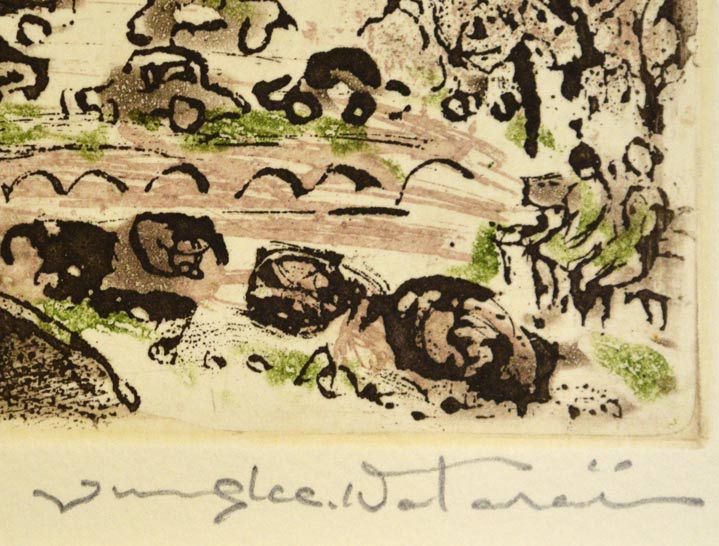 Junglee.Wataraï